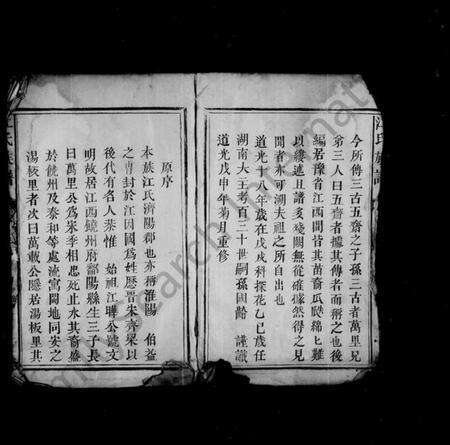 今所傳三古五齋之子孫三古者萬里兄
弟三人曰五齋者據其傳者而稱之也後
編君豫省江西間皆其苗裔瓜瓞綿匕難
以縷述且譜多殘闕無從確據然得之見
聞者未可湖夫祖之所自出也
道光十八年歲在戊戌科探花乙巳歲任
湖南大主考百三十世嗣孫國齡 謹識
道光戊申年菊月重修
江氏族譜
原序
本族江氏濟陽郡也亦稱淮陽 伯益
之胄封於江因國為姓歷晉宋齊梁以
後代有名人業惟 始祖江曄公號文
明故居江西饒州府鄱陽縣生三子長
曰萬里公為宋季相忠死止水其裔盛
於饒州及泰和等處流寓閩地同安之
湯板里者次曰萬載公隱居湯板里其
氏族譜
search Ltd